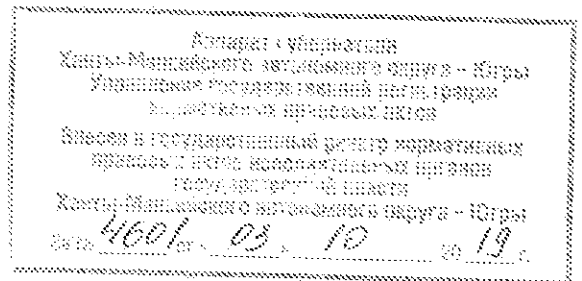 Аппарат Губернатора
Ханты-Мансийского автономного округа – Югры
Управление государственной регистрации
нормативных правовых актов
Внесен в государственный регистр нормативных
правовых актов исполнительных органов
государственной власти
Ханты-Мансийского автономного округа – Югры
4601 от « 03 » 10 20 19 г.